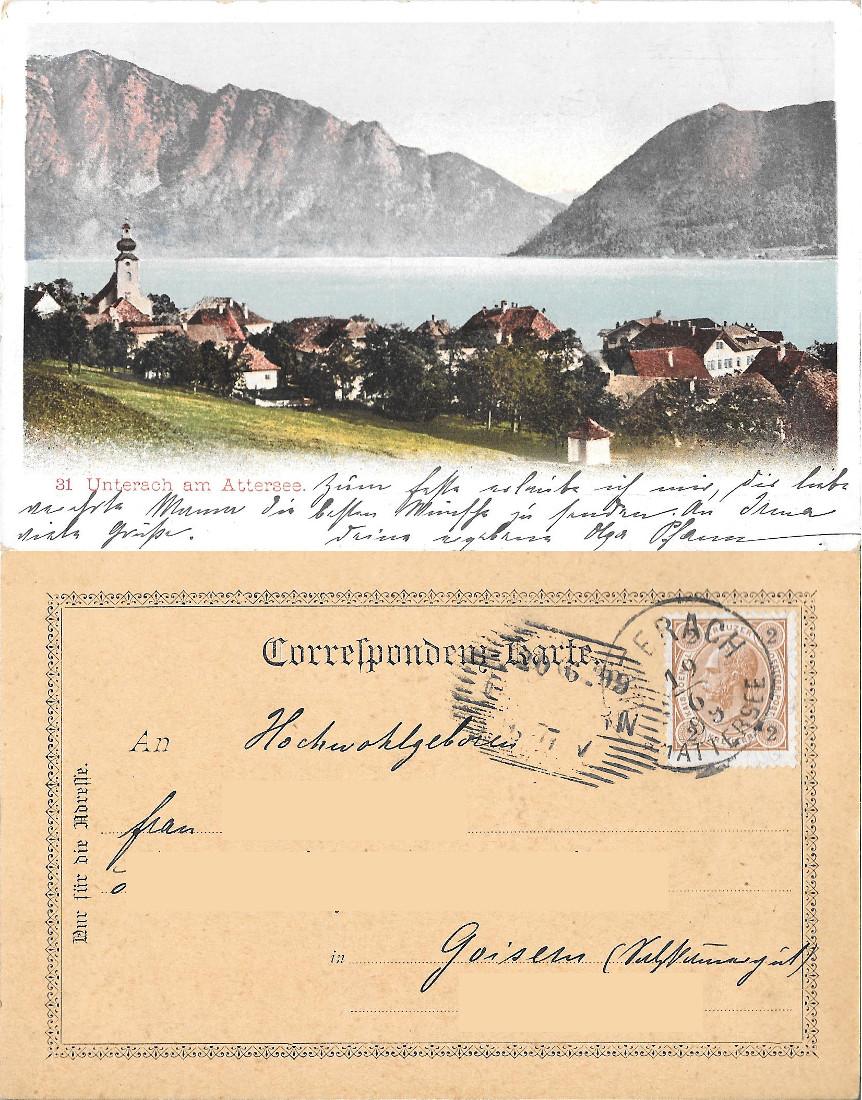 31 Unterach am Attersee. Zum Feste erlaube ich mir, die liebe
verehrte Mama die besten Wünsche zu senden. An Irma
viele Grüße. Deine ergebene Olga Pfann
Correſpondenz-Karte.
2 KREUZER 2
ERACH
19
6
ATTERSEE
20.6.99
An Hochwohlgeboren
Frau
Nur für die Adreſſe.
in Goisern (Salzkammergut)